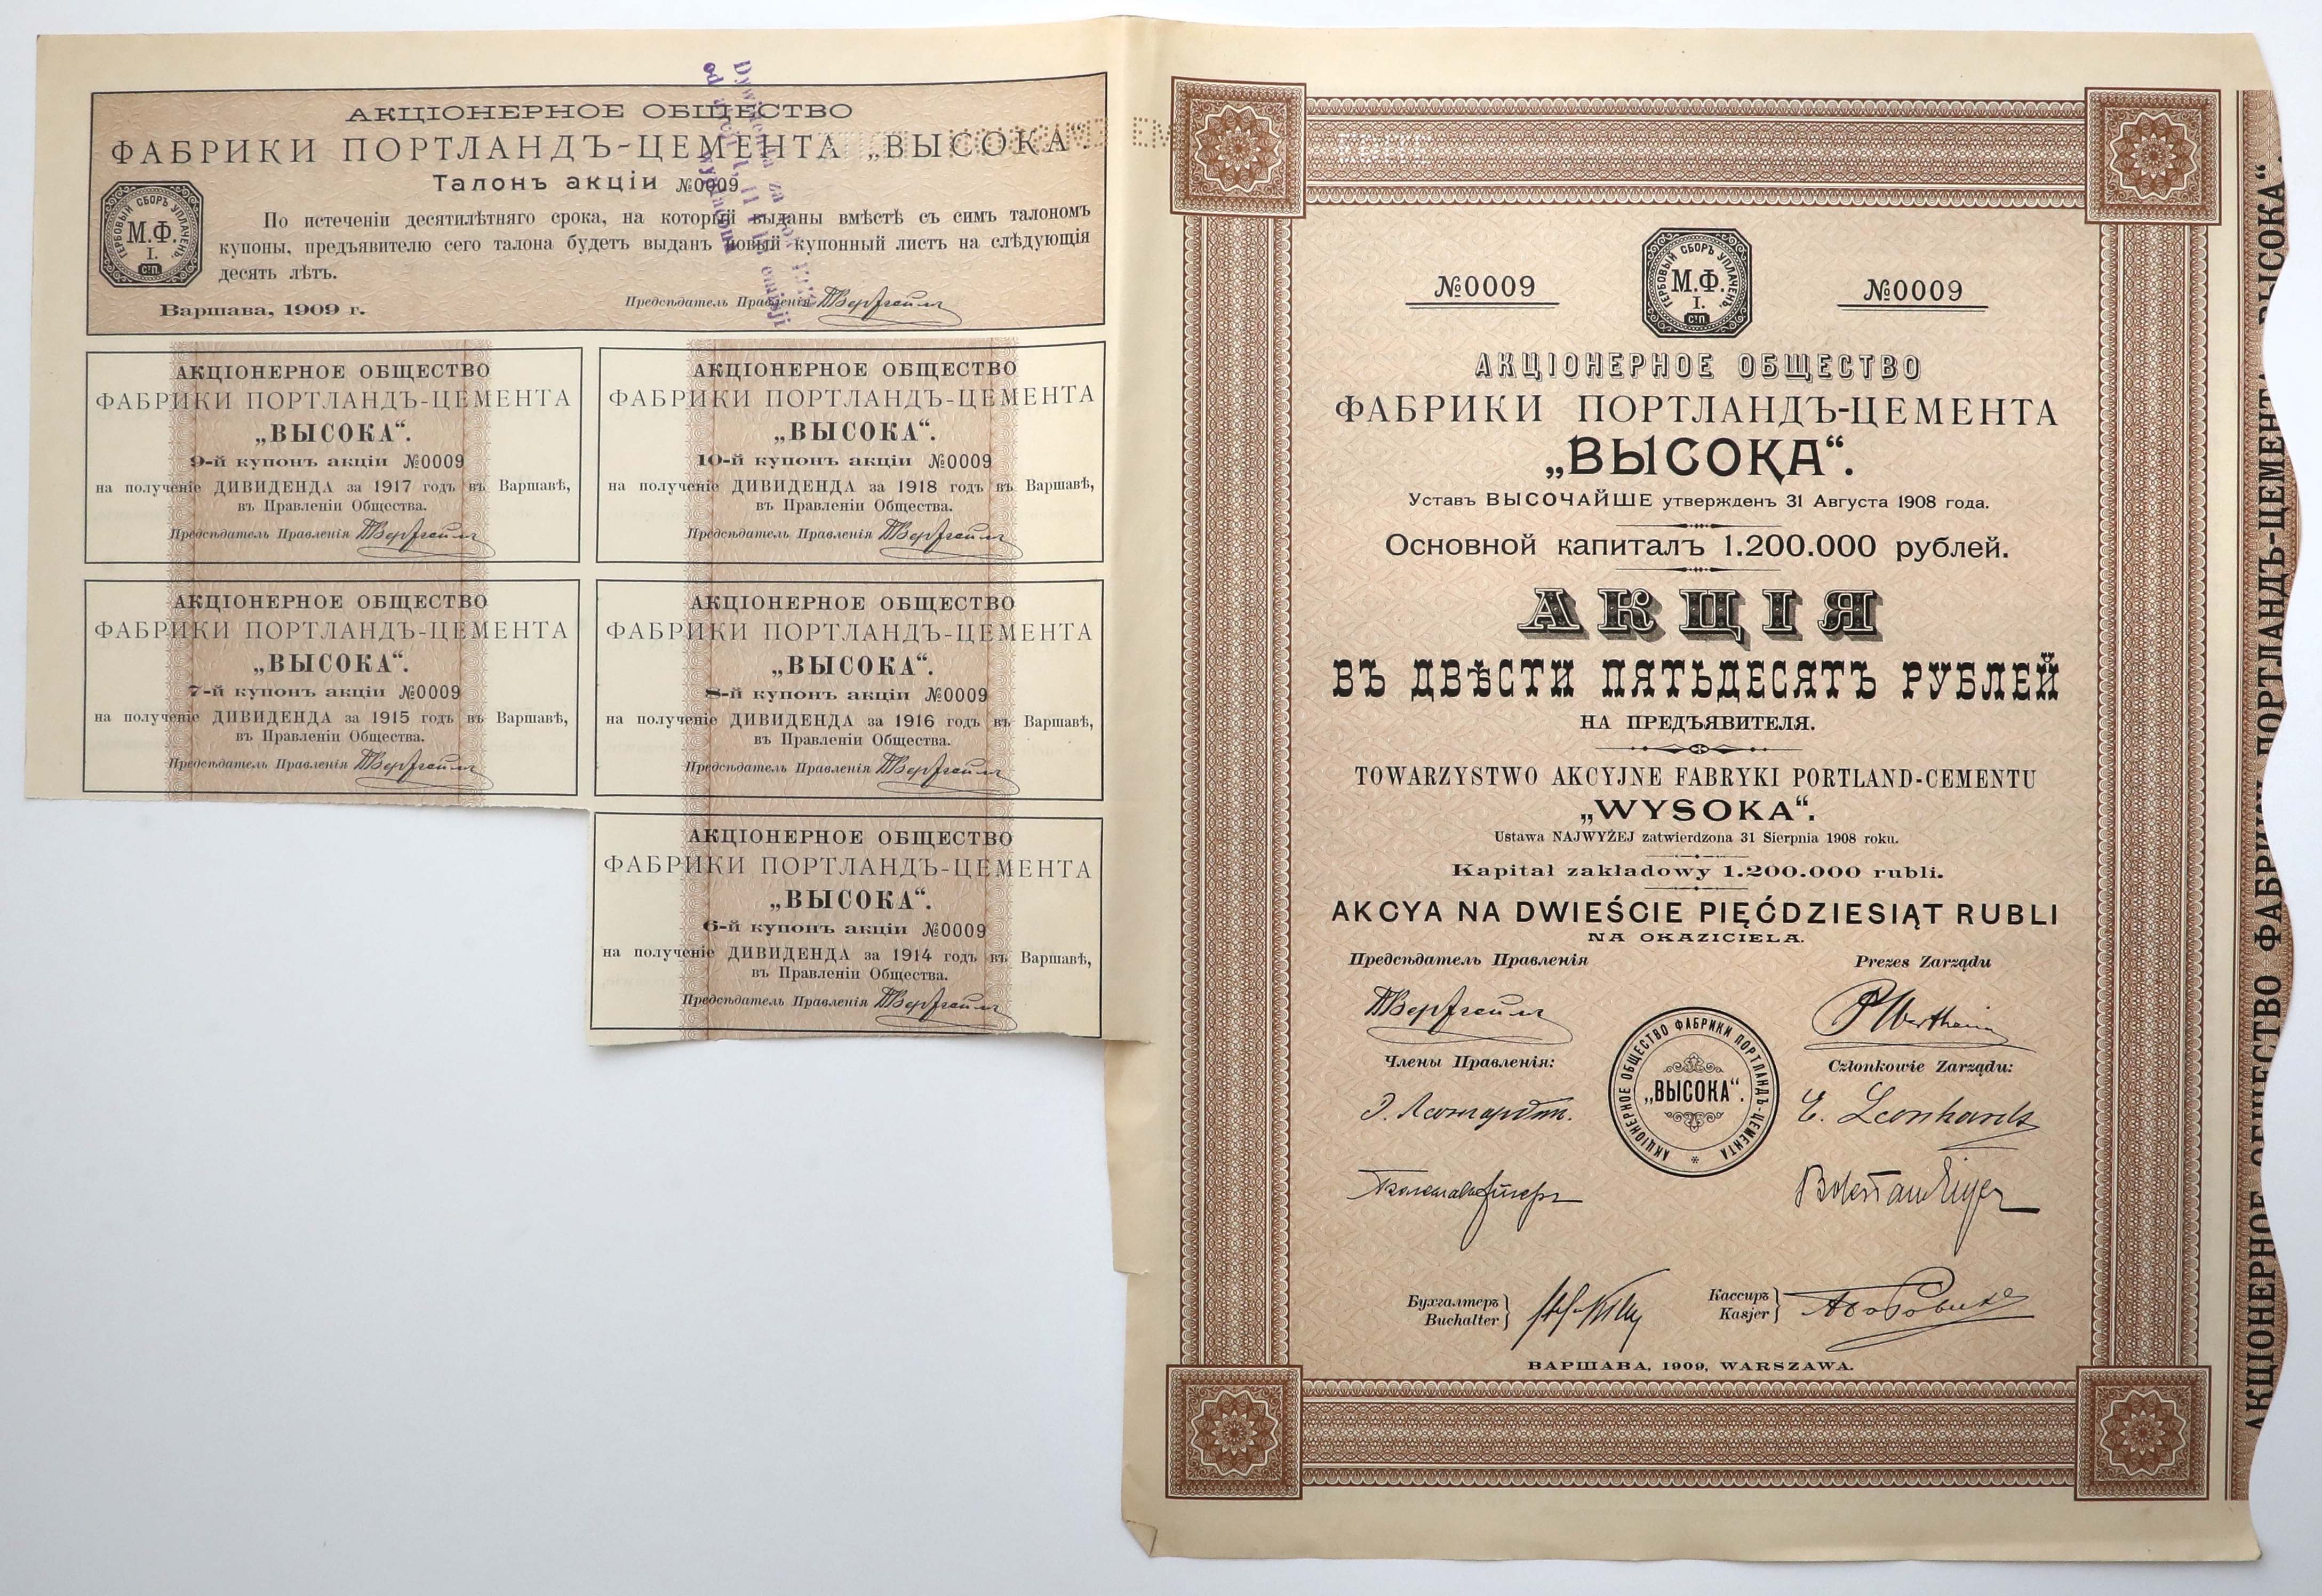 АКЦІОНЕРНОЕ ОБЩЕСТВО
ФАБРИКИ ПОРТЛАНДЪ-ЦЕМЕНТА „ВЫСОКА“.
Талонъ акціи №0009
ГЕРБОВЫЙ СБОРЪ УПЛАЧЕНЪ.
М.Ф.
I.
С.П.
По истеченіи десятилѣтняго срока, на который выданы вмѣстѣ съ симъ талономъ
купоны, предъявителю сего талона будетъ выданъ новый купонный листъ на слѣдующія
десять лѣтъ.
Варшава, 1909 г.
Предсѣдатель Правленія
АКЦІОНЕРНОЕ ОБЩЕСТВО
ФАБРИКИ ПОРТЛАНДЪ-ЦЕМЕНТА
„ВЫСОКА“.
9-й купонъ акціи №0009
на полученіе ДИВИДЕНДА за 1917 годъ въ Варшавѣ,
въ Правленіи Общества.
Предсѣдатель Правленія
АКЦІОНЕРНОЕ ОБЩЕСТВО
ФАБРИКИ ПОРТЛАНДЪ-ЦЕМЕНТА
„ВЫСОКА“.
10-й купонъ акціи №0009
на полученіе ДИВИДЕНДА за 1918 годъ въ Варшавѣ,
въ Правленіи Общества.
Предсѣдатель Правленія
АКЦІОНЕРНОЕ ОБЩЕСТВО
ФАБРИКИ ПОРТЛАНДЪ-ЦЕМЕНТА
„ВЫСОКА“.
7-й купонъ акціи №0009
на полученіе ДИВИДЕНДА за 1915 годъ въ Варшавѣ,
въ Правленіи Общества.
Предсѣдатель Правленія
АКЦІОНЕРНОЕ ОБЩЕСТВО
ФАБРИКИ ПОРТЛАНДЪ-ЦЕМЕНТА
„ВЫСОКА“.
8-й купонъ акціи №0009
на полученіе ДИВИДЕНДА за 1916 годъ въ Варшавѣ,
въ Правленіи Общества.
Предсѣдатель Правленія
АКЦІОНЕРНОЕ ОБЩЕСТВО
ФАБРИКИ ПОРТЛАНДЪ-ЦЕМЕНТА
„ВЫСОКА“.
6-й купонъ акціи №0009
на полученіе ДИВИДЕНДА за 1914 годъ въ Варшавѣ,
въ Правленіи Общества.
Предсѣдатель Правленія
№0009
ГЕРБОВЫЙ СБОРЪ УПЛАЧЕНЪ.
М.Ф.
I.
С.П.
№0009
АКЦІОНЕРНОЕ ОБЩЕСТВО
ФАБРИКИ ПОРТЛАНДЪ-ЦЕМЕНТА
„ВЫСОКА“.
Уставъ ВЫСОЧАЙШЕ утвержденъ 31 Августа 1908 года.
Основной капиталъ 1.200.000 рублей.
АКЦІЯ
ВЪ ДВѢСТИ ПЯТЬДЕСЯТЪ РУБЛЕЙ
НА ПРЕДЪЯВИТЕЛЯ.
TOWARZYSTWO AKCYJNE FABRYKI PORTLAND-CEMENTU
„WYSOKA“.
Ustawa NAJWYŻEJ zatwierdzona 31 Sierpnia 1908 roku.
Kapitał zakładowy 1.200.000 rubli.
AKCYA NA DWIEŚCIE PIĘĆDZIESIĄT RUBLI
NA OKAZICIELA.
Предсѣдатель Правленія
Prezes Zarządu
P Wertheim
Члены Правленія:
Członkowie Zarządu:
Э. Леонгардтъ.
E. Leonhardt
АКЦІОНЕРНОЕ ОБЩЕСТВО ФАБРИКИ ПОРТЛАНДЪ-ЦЕМЕНТА
„ВЫСОКА“.
Болеславъ Эйгеръ
Bolesław Eiger
Бухгалтеръ
Buchalter
Кассиръ
Kasjer
ВАРШАВА, 1909, WARSZAWA.
АКЦІОНЕРНОЕ ОБЩЕСТВО ФАБРИКИ ПОРТЛАНДЪ-ЦЕМЕНТА „ВЫСОКА“.